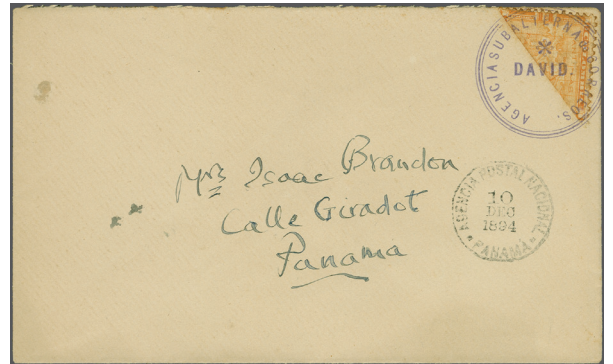 AGENCIA SUBALTERNA
DAVID.
Mrs Isaac Brandon
Calle Giradot
Panama
AGENCIA POSTAL NACIONAL
10
DEC
1894
PANAMA